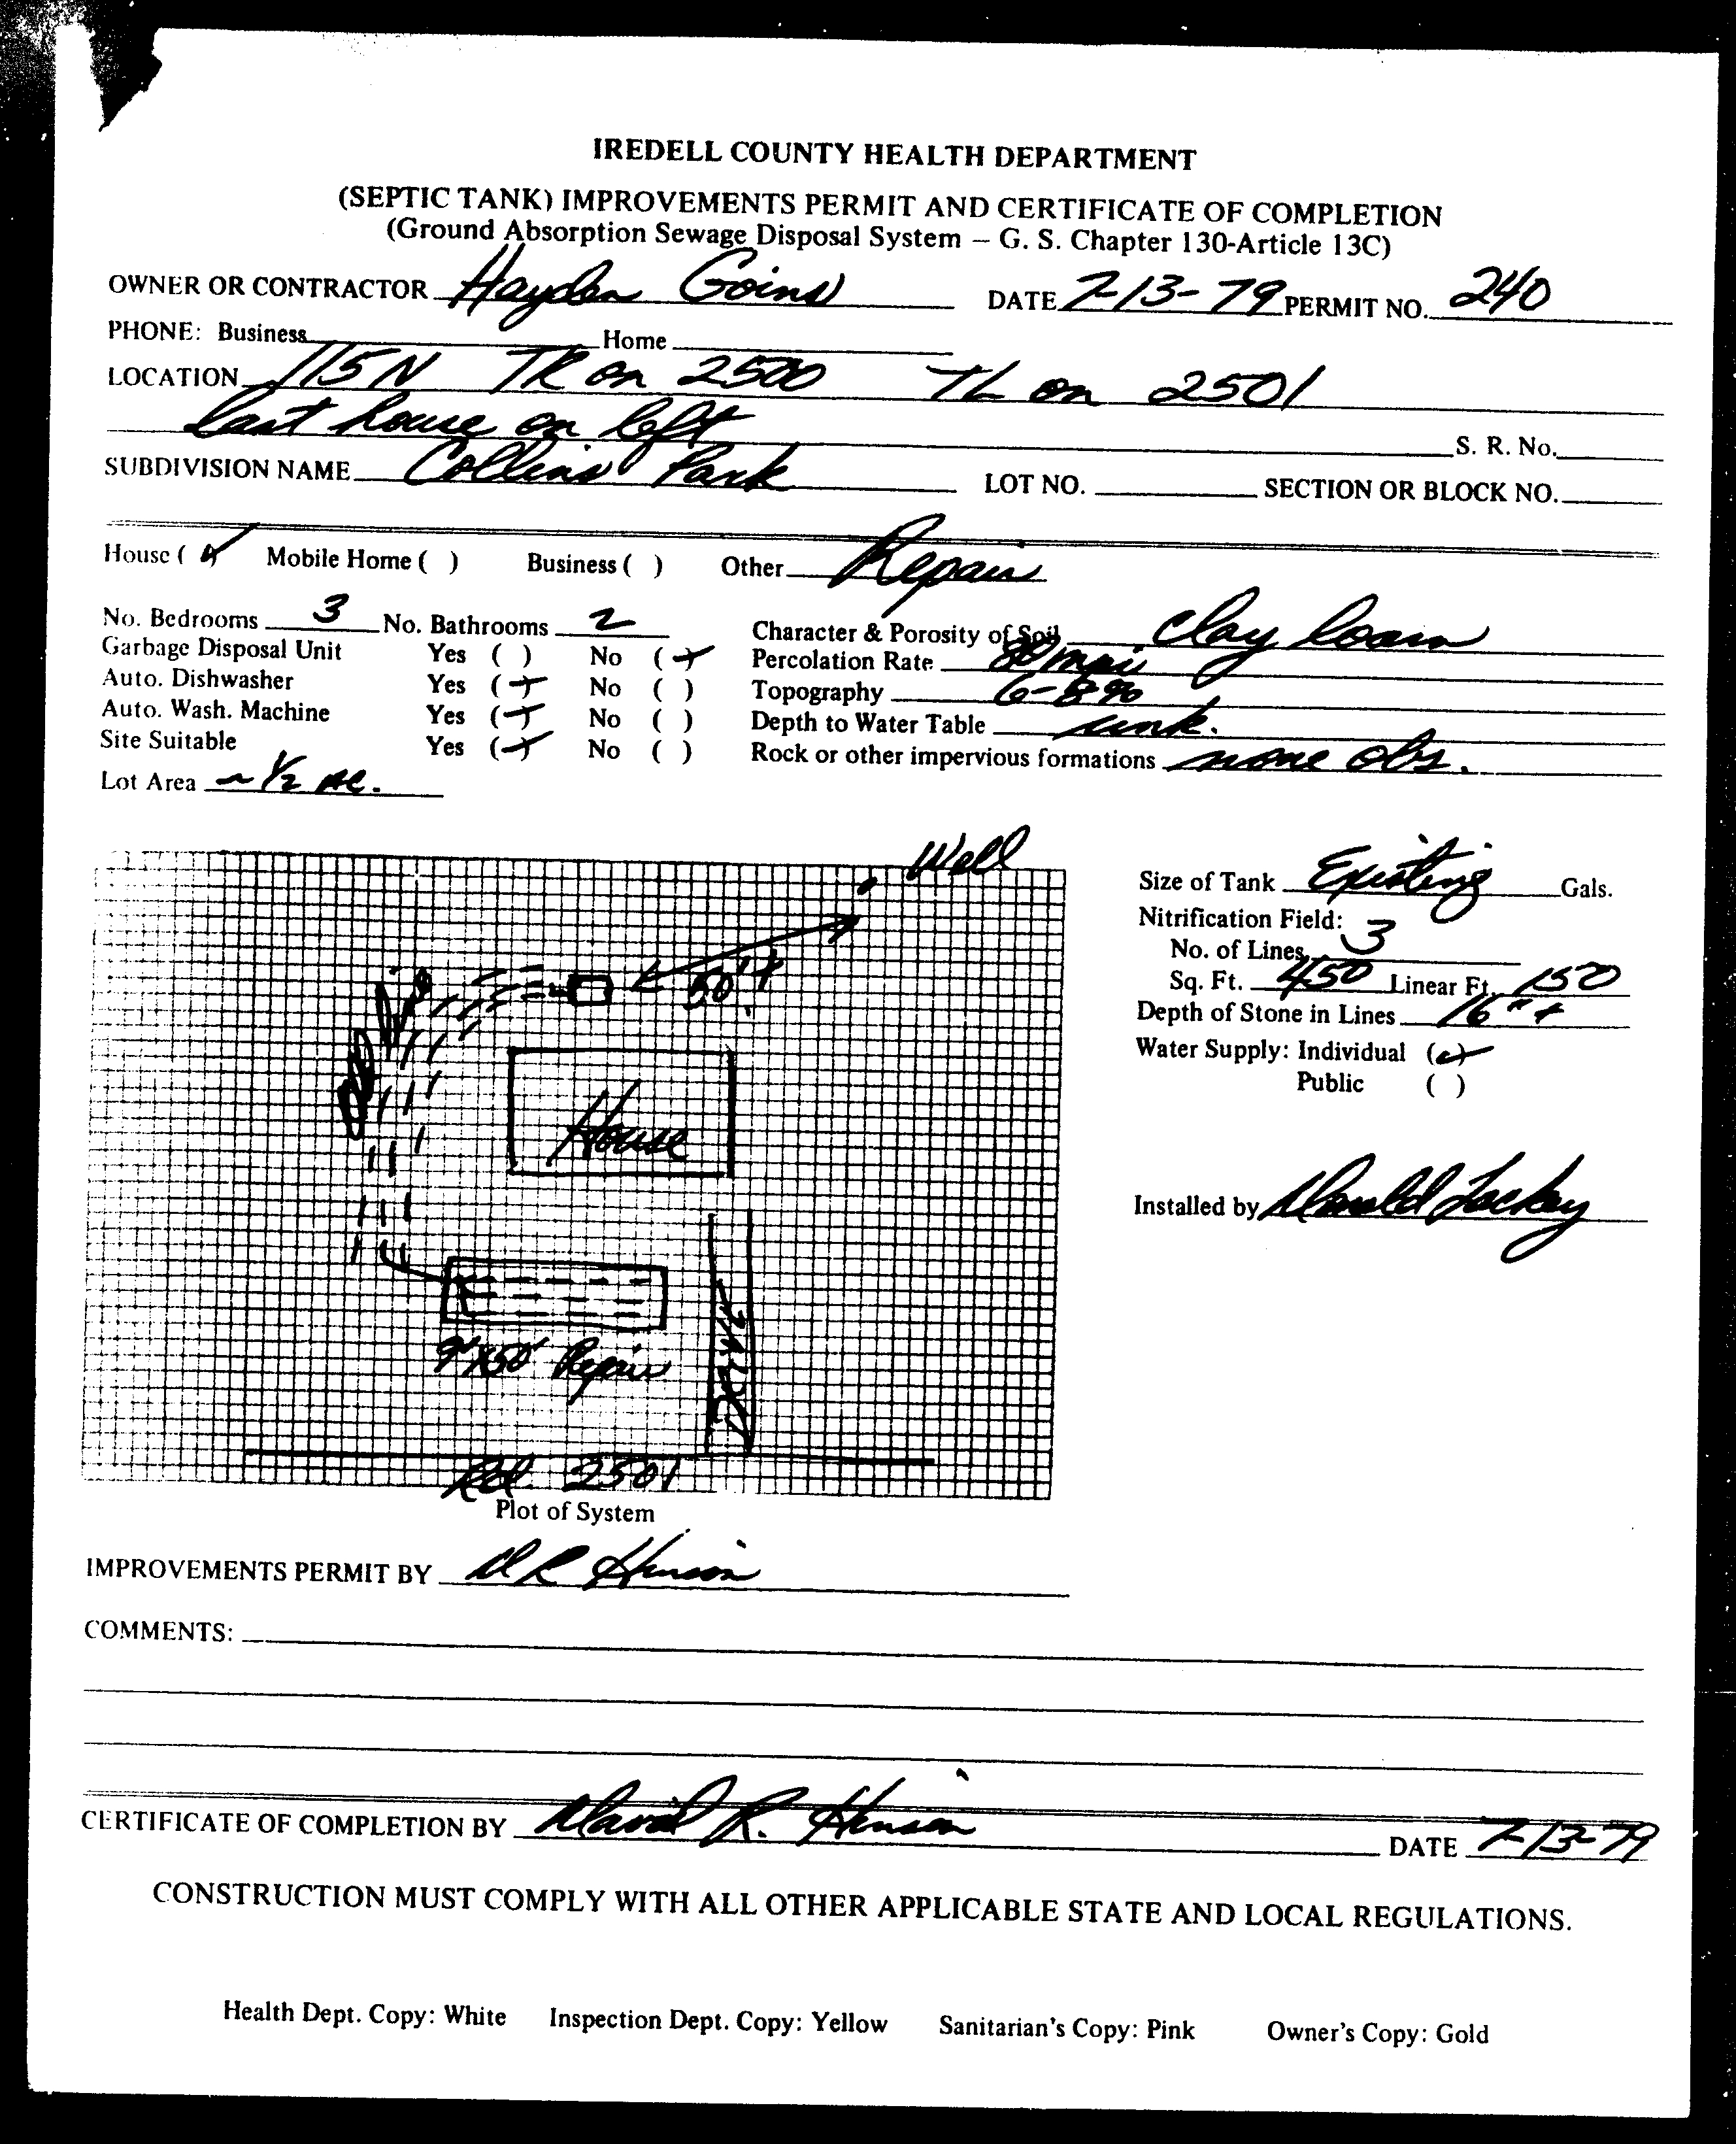 IREDELL COUNTY HEALTH DEPARTMENT
(SEPTIC TANK) IMPROVEMENTS PERMIT AND CERTIFICATE OF COMPLETION
(Ground Absorption Sewage Disposal System – G. S. Chapter 130-Article 13C)
OWNER OR CONTRACTOR Hayden Goins DATE 7-13-79 PERMIT NO. 240
PHONE: Business Home
LOCATION 115N TR on 2500 TL on 2501
last house on left S. R. No.
SUBDIVISION NAME Collins Park LOT NO. SECTION OR BLOCK NO.
House (✓) Mobile Home ( ) Business ( ) Other Repair
No. Bedrooms 3 No. Bathrooms 2 Character & Porosity of Soil Clay loam
Garbage Disposal Unit Yes ( ) No (✓) Percolation Rate 80 mpi
Auto. Dishwasher Yes (✓) No ( ) Topography 6-8%
Auto. Wash. Machine Yes (✓) No ( ) Depth to Water Table unk.
Site Suitable Yes (✓) No ( ) Rock or other impervious formations none obs.
Lot Area ~ 1/2 Ac.
Well
Size of Tank Existing Gals.
Nitrification Field:
No. of Lines 3
50'+
Sq. Ft. 450 Linear Ft. 150
Depth of Stone in Lines 16"+
Water Supply: Individual (✓)
Public ( )
House
Installed by Donald Lackey
9'x50' Repair
DRIVE
Rd. 2501
Plot of System
IMPROVEMENTS PERMIT BY D R Hinson
COMMENTS:
CERTIFICATE OF COMPLETION BY David R. Hinson DATE 7-13-79
CONSTRUCTION MUST COMPLY WITH ALL OTHER APPLICABLE STATE AND LOCAL REGULATIONS.
Health Dept. Copy: White Inspection Dept. Copy: Yellow Sanitarian's Copy: Pink Owner's Copy: Gold